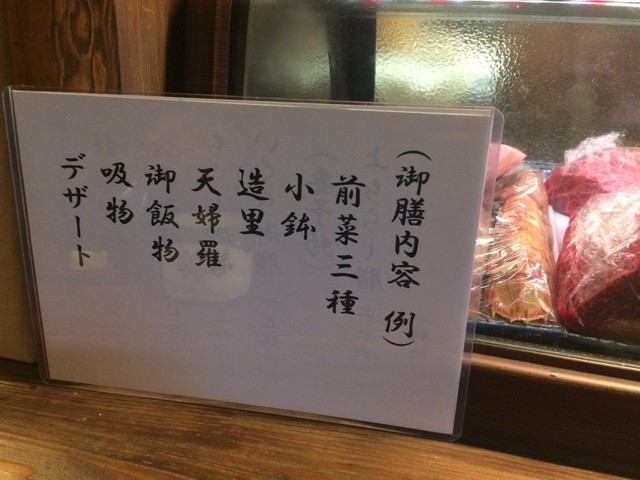 （御膳内容 例）
前菜三種
小鉢
造里
天婦羅
御飯物
吸物
デザート